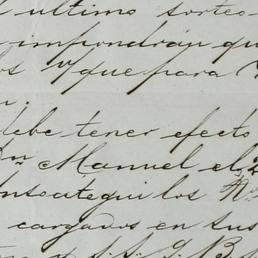 l ultimo sorteo
impondrán qu
os y que para
debe tener efecto
Dn Manuel el 2
Ansoátegui los
cargados en sus
S. S. Q. B.